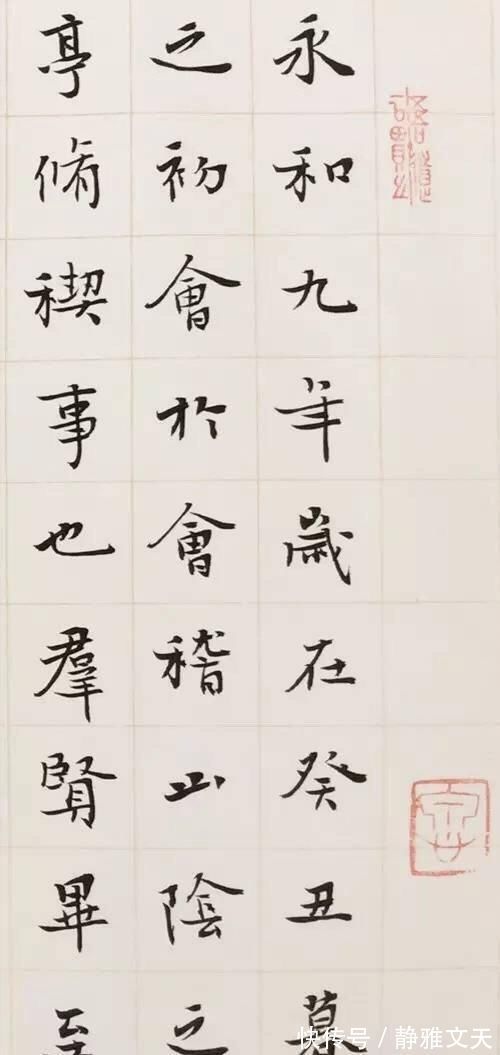 永和九年歲在癸丑暮
之初會於會稽山陰之
亭脩稧事也羣賢畢至
快传号/静雅文天